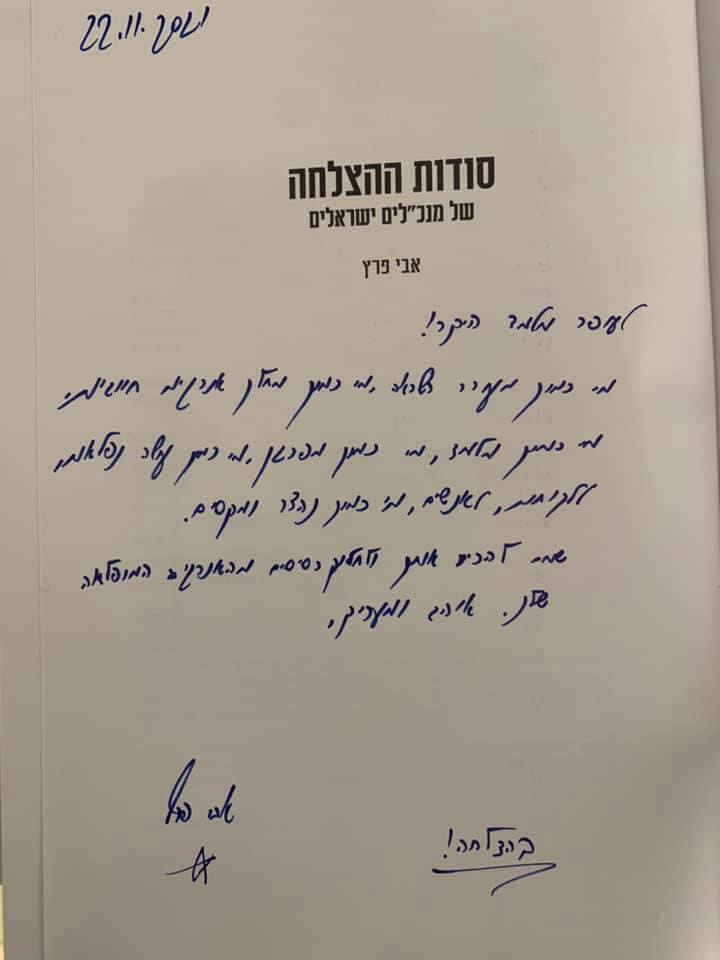 22.11.2021
סודות ההצלחה
של מנכ"לים ישראלים
אבי פרץ
לעופר מלמד היקר!
מי כמוך מעורר השראה, מי כמוך מחלק אנרגיות חיוביות.
מי כמוך מלמד, מי כמוך מפרגן, מי כמוך עושה נפלאות,
ללקוחות, לאנשים, מי כמוך נהדר ומקסים.
שמח להכיר אותך ולחלוק רסיסים מהאנרגיה המופלאה
שלך. אוהב ומעריך,
אבי פרץ
בהצלחה!